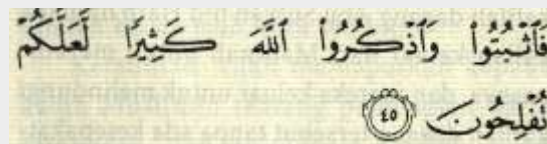 فَٱثۡبُتُواْ وَٱذۡكُرُواْ ٱللَّهَ كَثِيرٗا لَّعَلَّكُمۡ
تُفۡلِحُونَ ٤٥